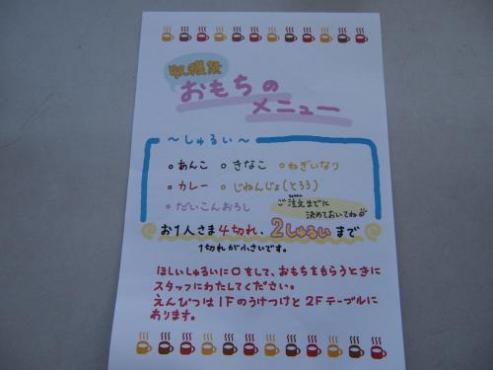 収穫祭
おもちの
メニュー
～しゅるい～
・あんこ ・きなこ ・ねぎいなり
・カレー ・じねんじょ(とろろ)
・だいこんおろし
注文までに
決めておいてね
お1人さま4切れ、2しゅるいまで
1切れが小さいです。
ほしいしゅるいに○をして、おもちをもらうときに
スタッフにわたしてください。
えんぴつは1Fのうけつけと2Fテーブルに
あります。